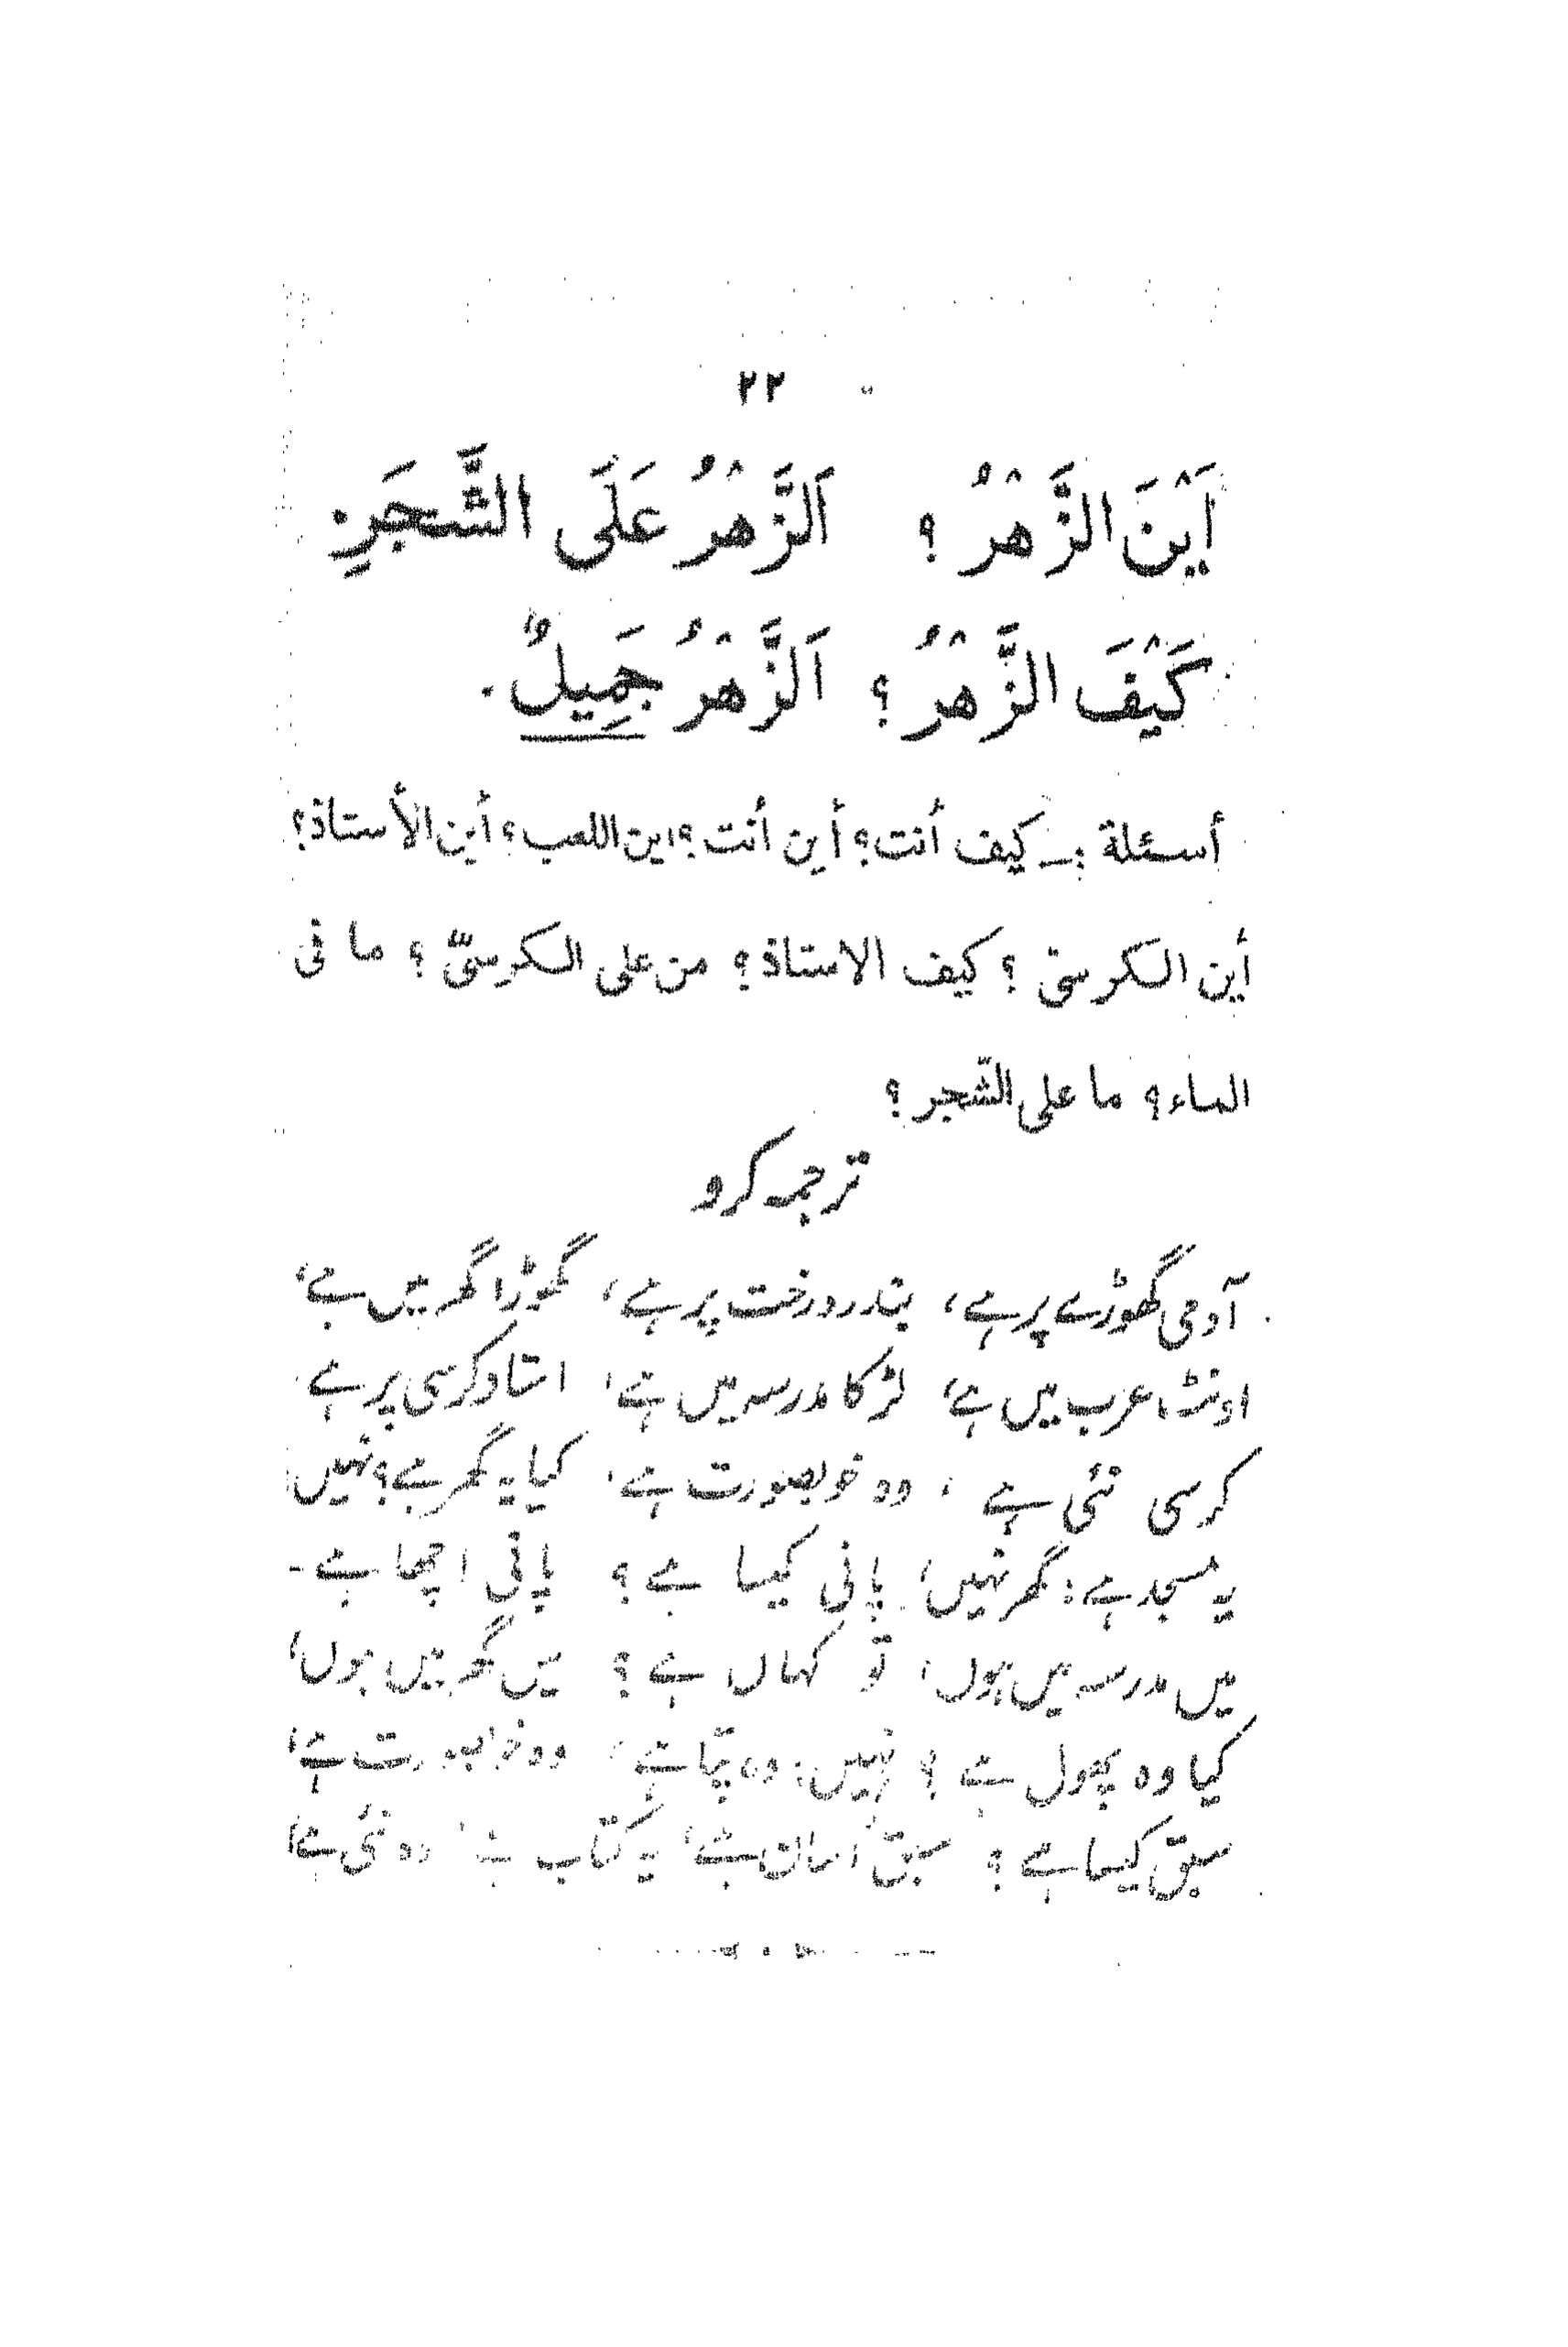 ۲۲
اَيْنَ الزَّهْرُ ؟ اَلزَّهْرُ عَلَى الشَّجَرِ.
كَيْفَ الزَّهْرُ ؟ اَلزَّهْرُ جَمِيلٌ.
أسئلة :ـ كيف أنت؟ أين أنت؟ اين اللعب؟ أين الأستاذ؟
أين الكرسى ؟ كيف الاستاذ؟ من على الكرسىّ ؟ ما فى
الماء؟ ما على الشّجر ؟
ترجمہ کرو
آدمی گھوڑے پر ہے، بندر درخت پر ہے، گھوڑا گھر میں ہے،
اونٹ عرب میں ہے، لڑکا مدرسہ میں ہے، استاد کرسی پر ہے
کرسی نئی ہے ، وہ خوبصورت ہے، کیا یہ گھر ہے؟ نہیں
یہ مسجد ہے: گھر نہیں، پانی کیسا ہے ؟ پانی اچھا ہے۔
میں مدرسہ میں ہوں، تو کہاں ہے ؟ میں گھر میں ہوں،
کیا وہ پھول ہے ؟ نہیں: وہ پتّا ہے، وہ خوبصورت ہے،
سبق کیسا ہے ؟ سبق آسان ہے، یہ کتاب ہے، وہ نئی ہے،